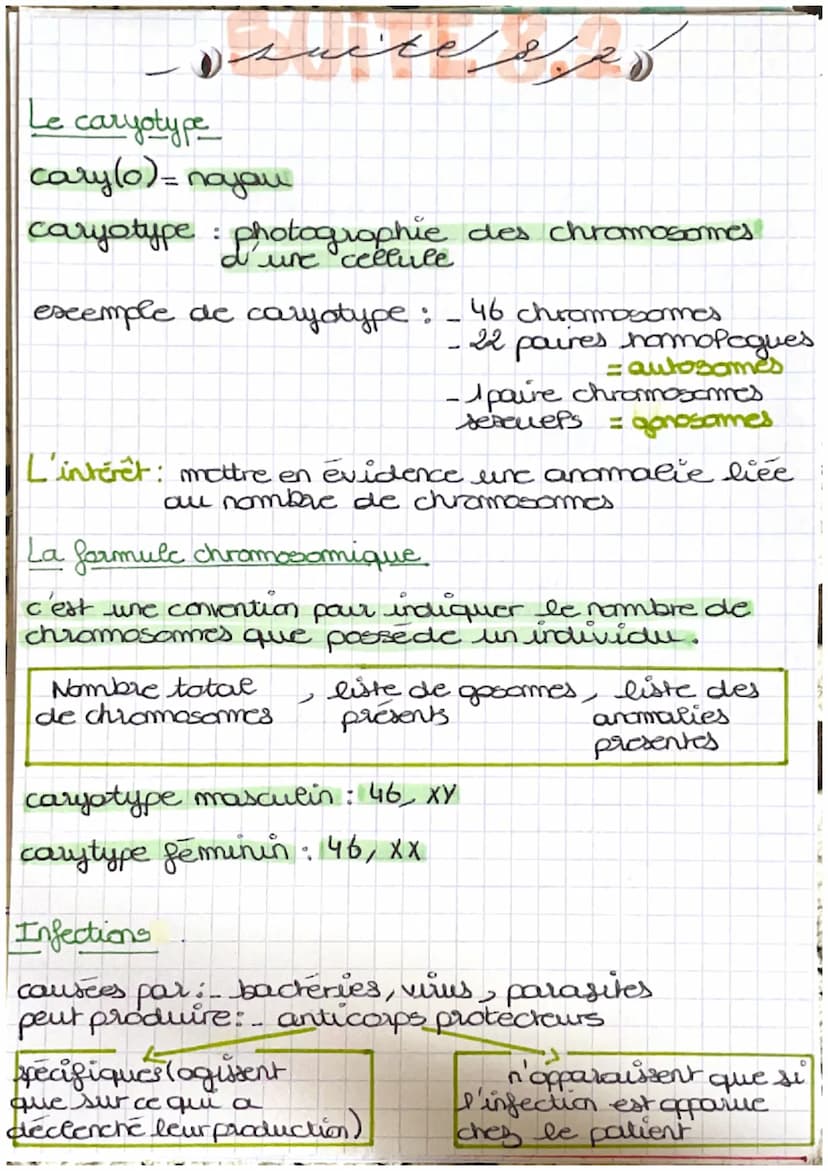 suite 8.2
Le caryotype
cary(o)= noyau
caryotype : photographie des chromosomes
d'une cellule
exemple de caryotype : - 46 chromosomes
- 22 paires homologues
= autosomes
- 1 paire chromosomes
sexuels = gonosomes
L'intérêt : mettre en évidence une anomalie liée
au nombre de chromosomes
La formule chromosomique
c'est une convention pour indiquer le nombre de
chromosomes que possède un individu.
Nombre total , liste de gosomes, liste des
de chromosomes présents anomalies
presentes
caryotype masculin : 46, XY
carytype féminin : 46, XX
Infections
causées par :- bactéries, virus, parasites
peut produire: - anticorps protecteurs
spécifiques (agissent
que sur ce qui a
déclenché leur production)
n'apparaissent que si
l'infection est apparue
chez le patient